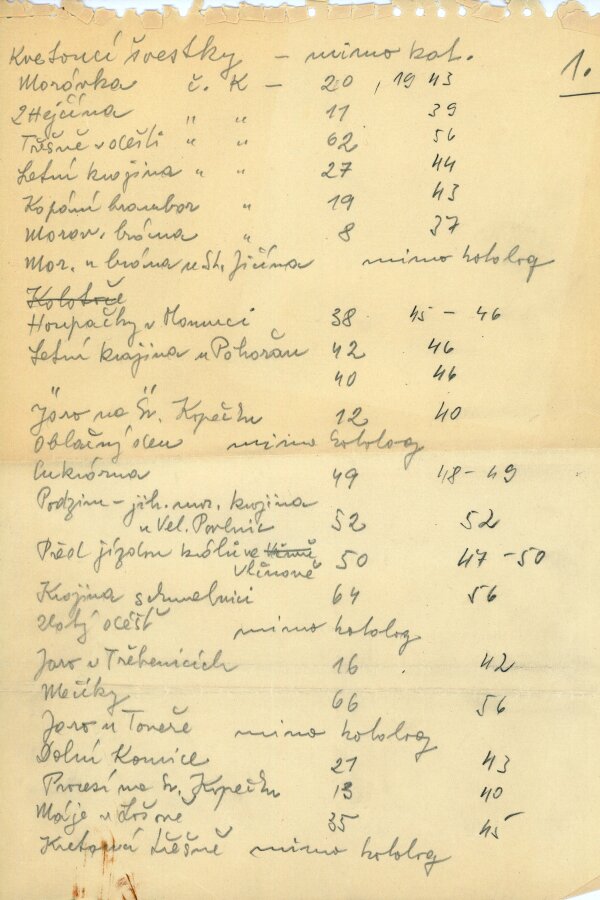 Kvetoucí švestky – mimo kat. 1.
Morávka č. K – 20 , 19 43
Zhejčína " " 11 39
Třešně v dešti " " 62 56
Letní krajina " " 27 44
Kopání brambor " 19 43
Morav. brána " 8 37
Mor. brána u St. Jičína mimo katalog
Kolotoč
Houpačky v Olomouci 38 45 – 46
Letní krajina u Pohořan 42 46
" " 40 46
Jaro na Sv. Kopečku 12 40
Oblačný den mimo katalog
Cukrárna 49 48 – 49
Podzim – jih. mor. krajina
u Vel. Pavlovic 52 52
Před jízdou králů ve 50 47 – 50
Vlčnově
Krajina s chmelnicí 64 56
Zlatý déšť mimo katalog
Jaro v Třebenicích 16 42
Mečíky 66 56
Jaro u Toveře mimo katalog
Dolní Kounice 21 43
Procesí na Sv. Kopečku 13 40
Máje v Lošově 35 45
Kvetoucí třešně mimo katalog